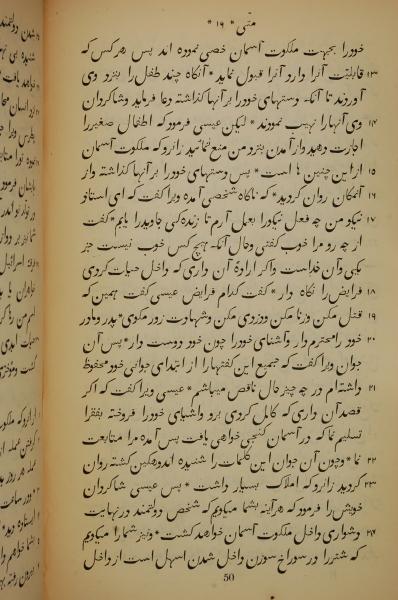 متی * ۱۹ *
خودرا بجهت ملکوت آسمان خصی نموده اند پس هر کس که
۱۳ قابلیّت آنرا دارد آنرا قبول نماید * آنگاه چند طفل را بنزد وی
آوردند تا آنکه دستهای خودرا بر آنها گذاشته دعا فرماید و شاکردان
۱۴ وی آنهارا نهیب نمودند * لیکن عیسی فرمود که اطفال صغیررا
اجازت دهید و از آمدن بنزد من منع نمائید زانرو که ملکوت آسمان
۱۵ از این چنین ها است * پس دستهای خودرا بر آنها گذاشته و از
۱۶ آنمکان روان کردید * که ناکاه شخصی آمده ویرا کفت که ای استاد
۱۷ نیکو من چه فعل نیکورا بعمل آرم تا زنده‌کی جاویدرا یابم * کفت
از چه رو مرا خوب کفتی و حال آنکه هیچ کس خوب نیست جز
یکی و آن خداست و اگر اراده آن داری که داخل حیات کردی
۱۸ فرایض را نکاه دار * کفت کدام فرایض عیسی کفت همین که
۱۹ قتل مکن و زنا مکن و دزدی مکن و شهادت زور مکوی * پدر و مادر
۲۰ خود را محترم دار و آشنای خودرا چون خود دوست دار * پس آن
جوان ویرا کفت که جمیع این کفتهارا از ابتدای جوانی خود محفوظ
۲۱ داشته‌ام در چه چیز حال ناقص میباشم * عیسی ویرا کفت که اکر
قصد آن داری که کامل کردی برو و اشیای خودرا فروخته بفقرا
تسلیم نما که در آسمان کنجی خواهی یافت پس آمده مرا متابعت
۲۲ نما * و چون آن جوان این کلمات را شنیده اندوهکین کشته روان
۲۳ کردید زانرو که املاک بسیار داشت * پس عیسی شاکردان
خویش را فرمود که هر آینه بشما میکویم که شخص دولتمند در نهایت
۲۴ دشواری داخل ملکوت آسمان خواهد کشت * و نیز شمارا میکویم
که شتررا در سوراخ سوزن داخل شدن اسهل است از داخل
50